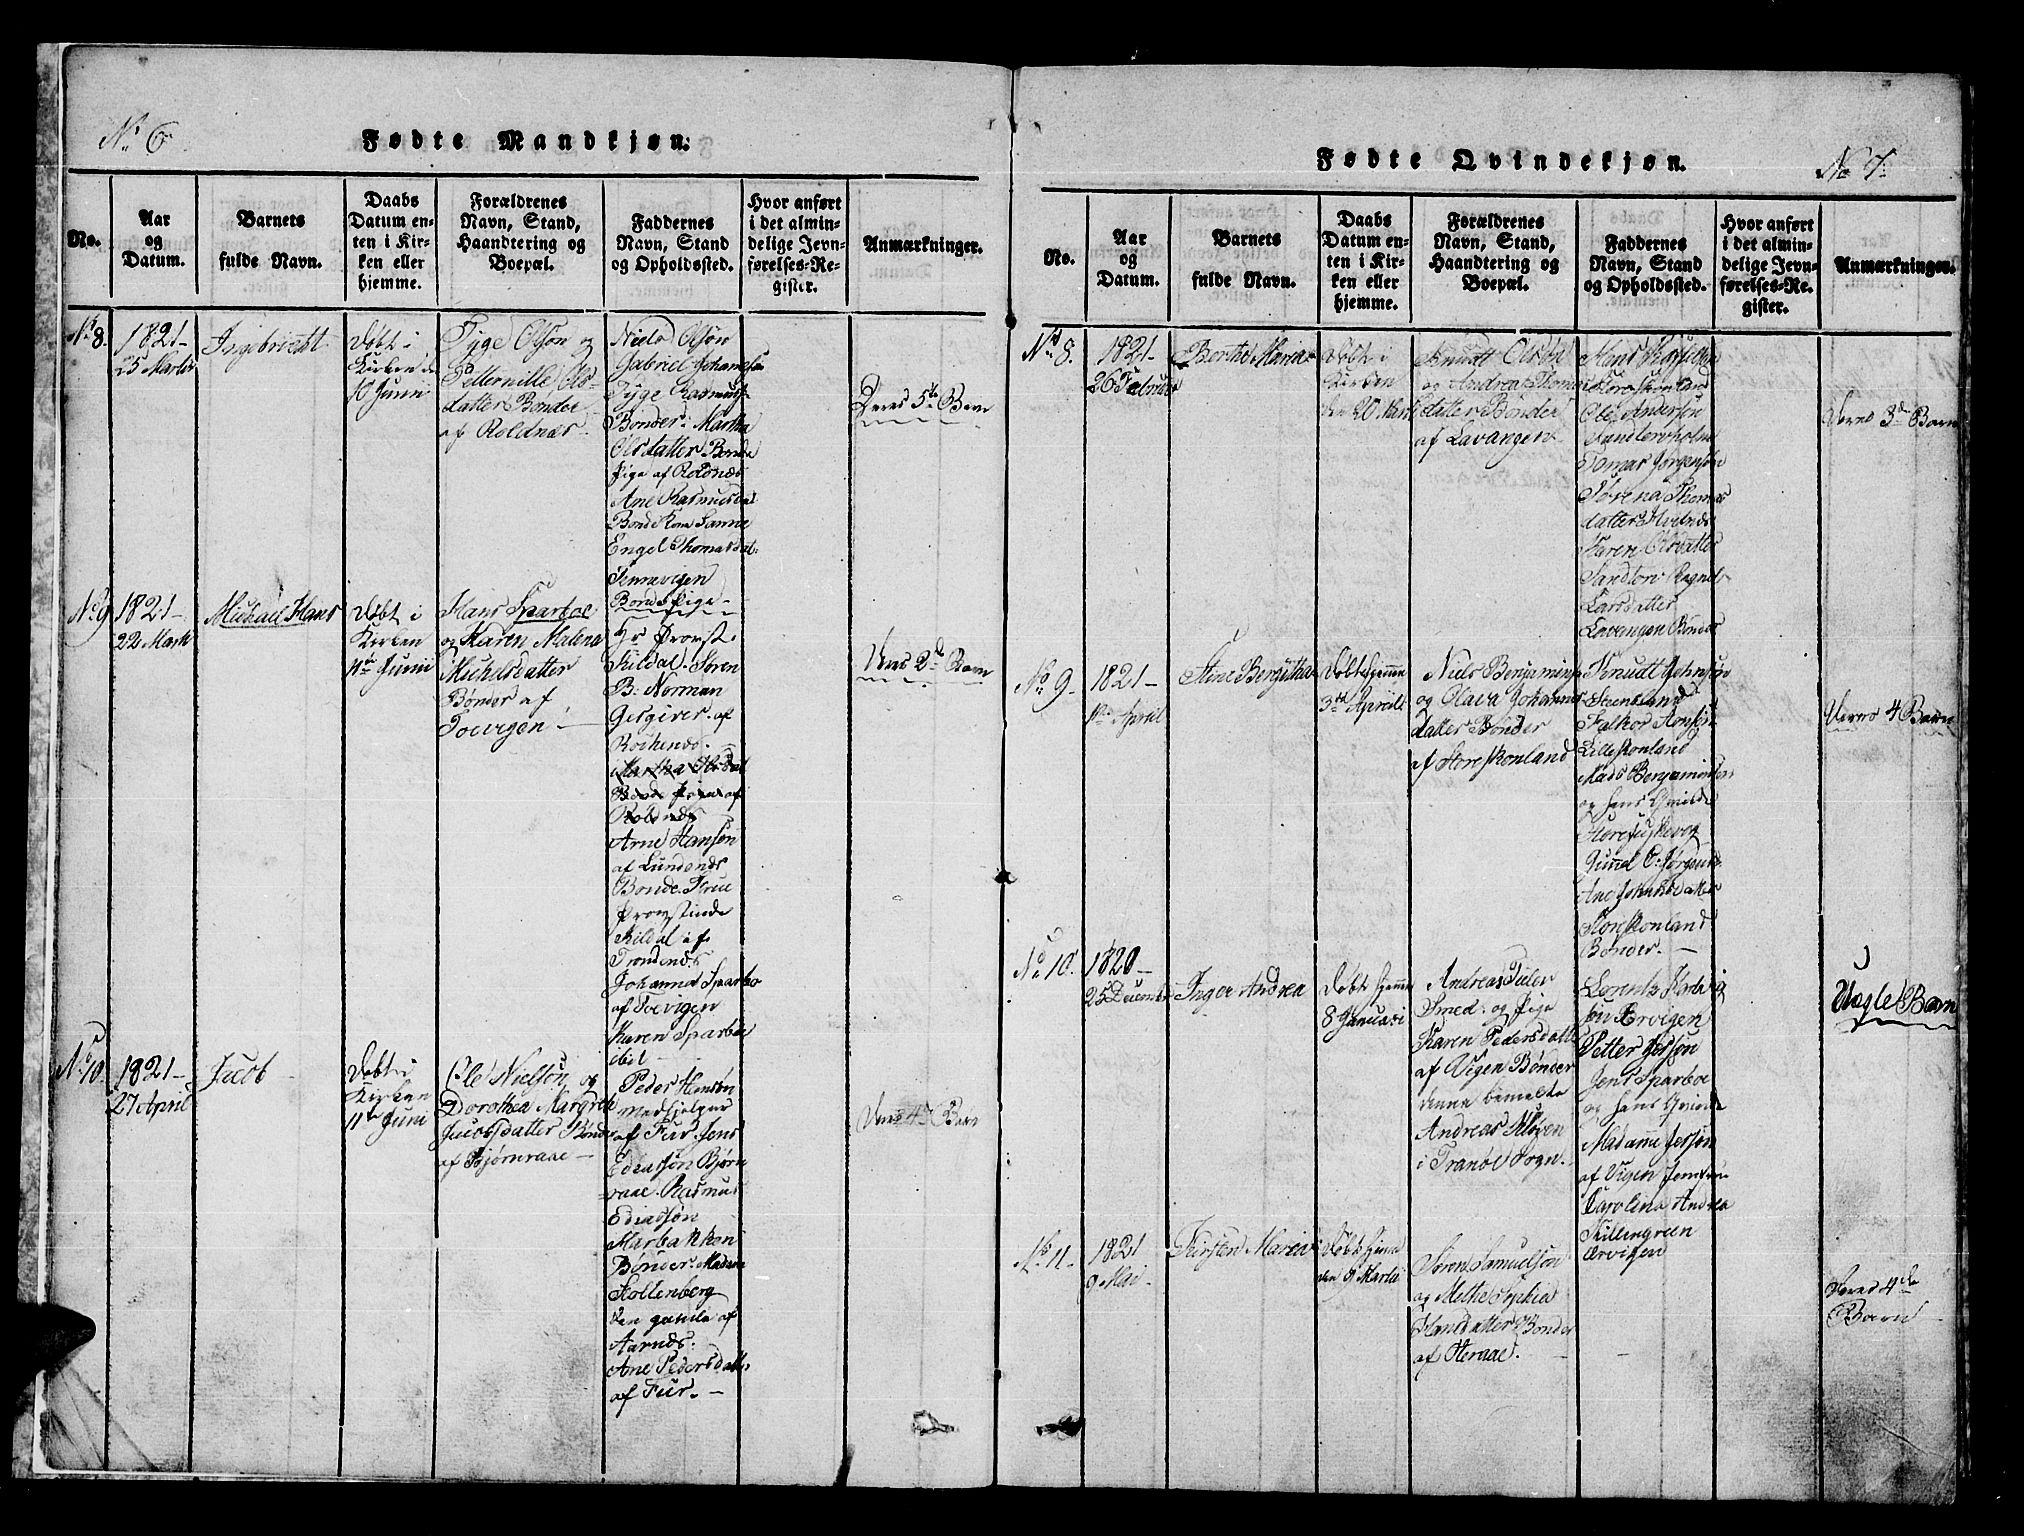 No 6
Fødte Mandkjøn.
No.
Aar
og
Datum.
Barnets
fulde Navn.
Daabs
Datum en-
ten i Kir-
ken eller
hjemme.
Forældrenes
Navn, Stand,
Haandtering og
Boepæl.
Faddernes
Navn, Stand
og Opholdssted.
Hvor anført
i det almin-
delige Jevn-
førelses-Re-
gister.
Anmærkninger.
No 8.
1821-
25 Martii
Ingebricht
Døbt i
Kirken d
10 Junii
Tyge Olsøn og
Petternille Ols-
datter Bønder
af Roldnæs
Niels Olsøn
Gabriel Johannesøn
Tyge Rasmus-
Bønder: Martha
Olsdatter Bonde
Pige af Roldnæs
Ane Rasmusdat
Bonde Kone
Engel Thomasdat-
Bonde Pige-
Deres 5te Barn
No 9
1821-
22 Marti
Michael Hans
Døbt i
Kirken
11te Junii
Hans Sparboe
og Karen Malena
Michelsdatter
Bønder af
Toevigen -
Hr Provst
Kildal. Søren
B: Norman
af
Martha Olsdat
Bonde Pige af
Roldnæs
Arne Hansøn
af Lundenæs
Bonde. Frue
Provstinde
Kildal af
Trondenæs
Johanna Sparbo
af Toevigen
Karen Sparbo
ibid -
Deres 2d Barn
No 10.
1821-
27 April
Jacob
Døbt i
Kirken
11te Juni
Ole Nielsøn og
Dorothea Margreth
Jacobsdatter Bønder
af Bjørnraae -
Peder Hansøn
Medhjelper
af Fur. Jens
Ediassøn Bjørn
raae. Rasmus
Ediassøn
Marbakken
Bønder. Madam
Hollenberg
den gamle af
Aarnæs:
Ane Pedersdatt-
af Fur. -
Deres 4de Barn
Fødte Qvindekjøn.
No 7.
No.
Aar
og
Datum.
Barnets
fulde Navn.
Daabs
Datum en-
ten i Kir-
ken eller
hjemme.
Forældrenes
Navn, Stand,
Haandtering og
Boepæl.
Faddernes
Navn, Stand
og Opholdssted.
Hvor anført
i det almin-
delige Jevn-
førelses-Re-
gister.
Anmærkninger.
No 8.
1821-
26 Februar
Berthe Maria
Døbt i
Kirken
den 20 Marti
Knudt Olsøn
og Andrea Thomas
datter Bønder
af Lavangen
Ole Andersøn
Tomas Jørgensøn
Sørena Thomas
datter
Karen Olsdatter
Sandtorv Ragnel
Larsdatter
Lavangen Bønder
Deres 3de Barn
No 9.
1821-
1te April
Stine Bergitha
Døbt Hjemme
3de April
Niels Benjamins
og Olava Johannes
datter Bønder
af Storeskonland
Knudt Johnsøn
Steensland
Lilleskonland
Mads Benjaminsen
og hans Qvinde
Ane Johnsdatter
Storskonland
Bønder. -
Deres 4 Barn
No 10.
1820-
25 December
Inger Andrea
Døbt Hjemme
8 Januari
Andreas Tiiler
Smed: og Pige
Karen Pedersdatte
af Vigen Bønder
denne bemeldte
Andreas Kløven
i Tranøe Sogn.
Lorents
Ervigen
Petter Jersøn
Jens Sparboe
og hans Qvinde
Madame Jersøn
af Vigen
Carolina Andrea
Killengreen
Ervigen
Uægte Barn
No 11.
1821
9 Mai
Kirsten Maria
Døbt Hjem
den 9 Martii
Søren Samuelsøn
og Methe Sophia
Hansdatter Bønder
af Heraae.
Deres 4de
Barn